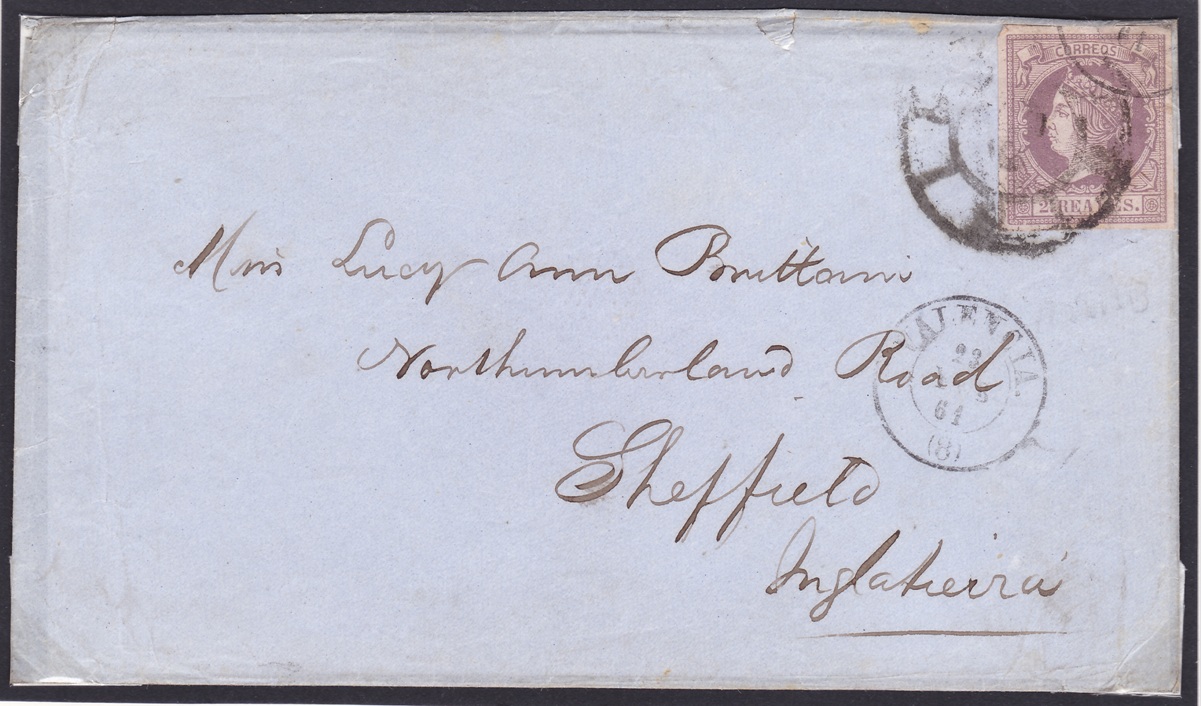 CORREOS
2 REALES.
Miss Lucy Ann Brittain
Northumberland Road
Sheffield
Inglatierra
VALENCIA.
23
61
(8)